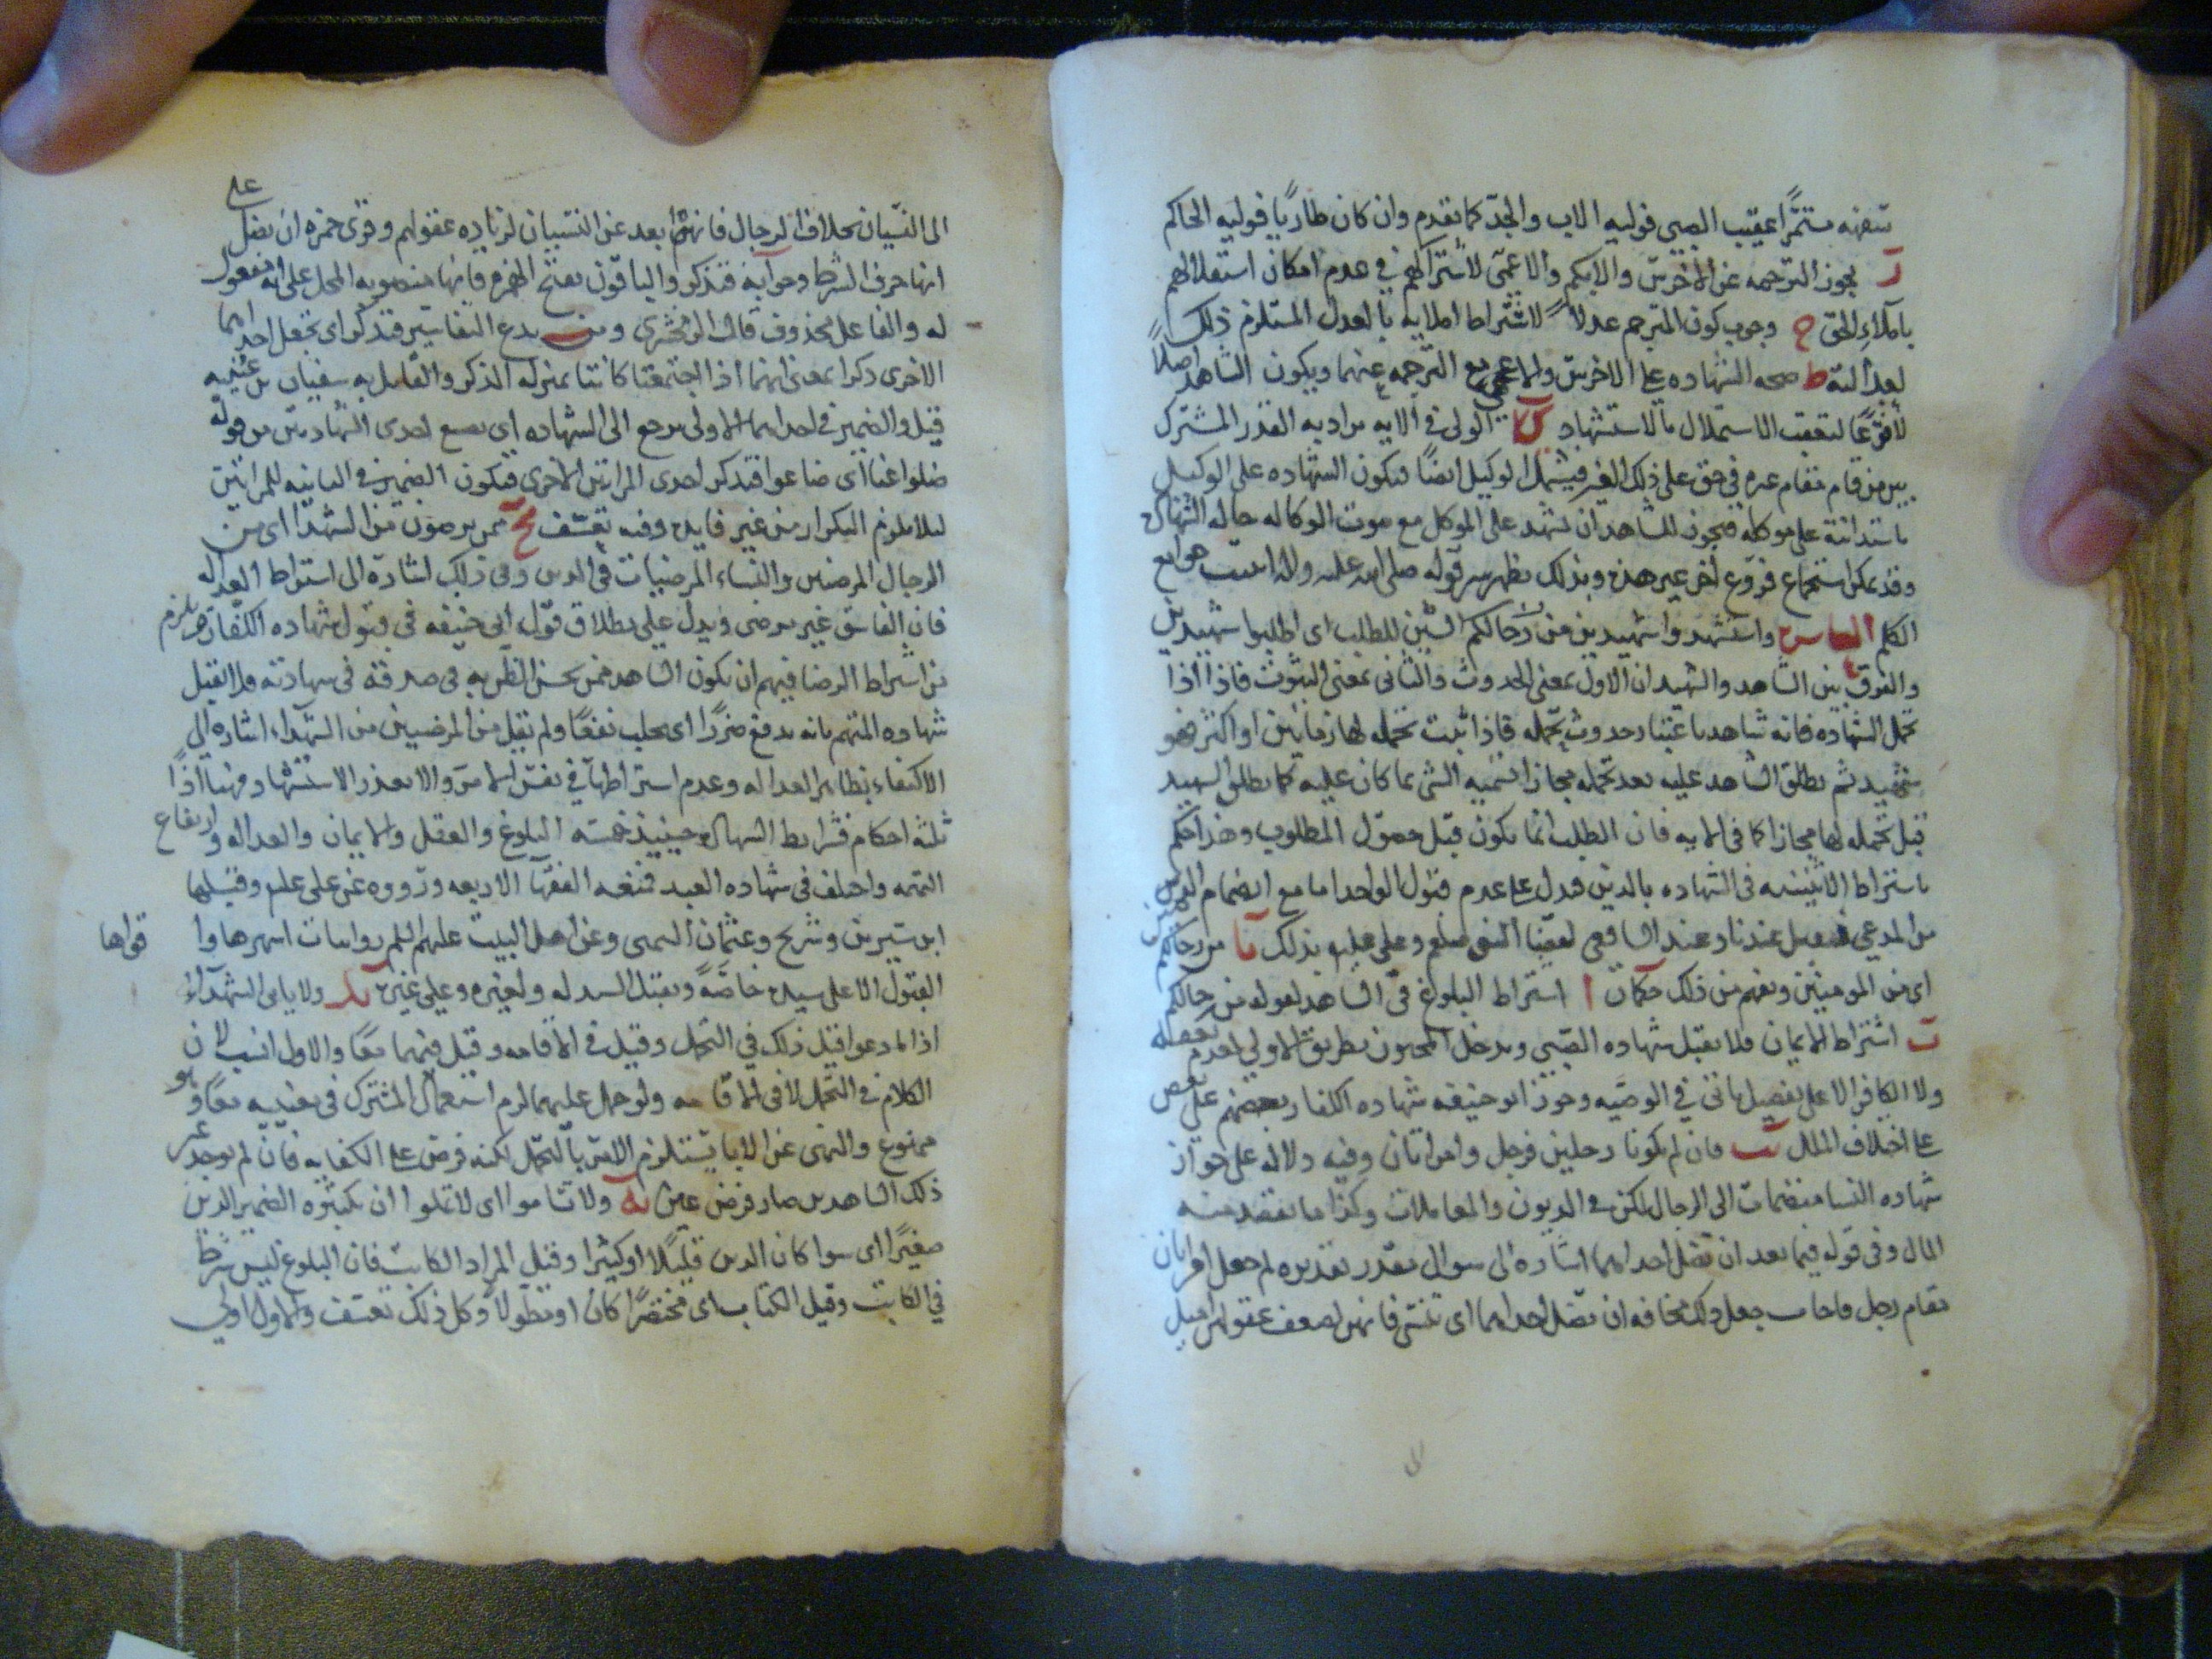 سفهه مستمرًا عقيب الصبى فوليه الاب والجدّ كما تقدم وان كان طاريًا فوليه الحاكم
ز يجوز الترجمه عن الاخرس والابكم والاعمى لاشتراكهم فى عدم امكان استقلالهم
باملاءِ الحق ح وجوب كون المترجم عدلاً لاشتراط املايه بالعدل المستلزم ذلك
لعدالته ط صحه الشهاده على الاخرس والاعجمى مع الترجمه عنهما ويكون الشاهد اصلاً
لا فرعًا لتعقب الاستملال بالاستشهاد الولى فى الايه يراد به القدر المشترك
بين من قام مقام غيره فى حق على ذلك الغير فيشمل الوكيل ايضًا فتكون الشهاده على الوكيل
باستدانته على موكله فيجوز للشاهد ان يشهد على الموكل مع موت الوكاله حاله الشهاده
وقد يمكن استجماع فروع اخر غير هذه وبذلك يظهر سر قوله صلى الله عليه واله اتيت جوامع
الكلم واستشهدوا شهيدين من رجالكم السّين للطلب اى اطلبوا شهيدين
والفرق بين الشاهد والشهيد ان الاول بمعنى الحدوث والثانى بمعنى الثبوت فاذا اذا
تحمل الشهاده فانه شاهد باعتبار حدوث تحمله فاذا ثبت تحمله لها زمانين او اكثر فهو
شهيد ثم يطلق الشاهد عليه بعد تحمله مجازا تسميه الشى بما كان عليه كما يطلق الشهيد
قبل تحمله لها مجازا كما فى الايه فان الطلب انما يكون قبل حصول المطلوب وهذا حكم
باشتراط الاثنينيه فى الشهاده بالدين فدل على عدم قبول الواحد اما مع انضمام اليمين
من المدعى فيقبل عندنا وعند الشافعى لقضا النبى صلعم وعلى عليه بذلك من رجالكم
اى من المومنين ويفهم من ذلك حكمان ا اشتراط البلوغ فى الشاهد لقوله من رجالكم
ب اشتراط الايمان فلا يقبل شهاده الصّبى ويدخل المجنون بطريق الاولى لعدم تعقله
ولا الكافر الا على تفصيل ياتى فى الوصيّه وجوز ابو حنيفه شهاده الكفار بعضهم على بعض
على اختلاف الملل فان لم يكونا رجلين فرجل وامراتان وفيه دلاله على جواز
شهاده النسا منضمات الى الرجال لكن فى الديون والمعاملات وكذا ما يقصد منه
المال وفى قوله فيما بعد ان تضل احداهما اشاره الى سوال مقدر تقديره لم جعل امراتان
مقام رجل فاجاب جعل ذلك مخافه ان تضل احداهما اى تنسى فانهن لضعف عقولهن اميل
الى النسيان بخلاف الرجال فانهم ابعد عن النسيان لزياده عقولهم وقرى حمزه ان تضل على
انها حرف الشرط وجوابه فتذكر والباقون بفتح الهمزه فانها منصوبه المحل على انه مفعول
له والفاعل محذوف قال الزمخشرى ومن بدع التفاسير فتذكر اى تجعل احداهما
الاخرى ذكرا بمعنى انهما اذا اجتمعتا كانتا بمنزله الذكر والقايل به سفيان بن عيينه
قيل والضمير فى احداهما الاولى يرجع الى الشهاده اى يضيع احدى الشهادتين من قوله
ضلوا عنا اى ضاعوا فتذكر احدى المراتين الاخرى فتكون الضمير فى الثانيه للمراتين
ليلا يلزم التكرار من غير فايده وفيه تعسف ممن ترضون من الشهدا اى من
الرجال المرضيين والنساء المرضيات فى الدين وفى ذلك اشارة الى اشتراط العداله
فان الفاسق غير مرضى ويدل على بطلاق قول ابى حنيفه فى قبول شهاده الكفار ويلزم
من اشتراط الرضا فيهم ان يكون الشاهد ممن يحسن الظن به فى صدقه فى شهادته فلا تقبل
شهاده المتهم بانه يدفع ضررًا اى يجلب نفعًا ولم تقبل من المرضيين من الشهداء اشاره الى
الاكتفاء بظاهر العداله وعدم اشتراطها فى نفس الامر والا تعذر الاستشهاد فهنا اذًا
ثلثه احكام فشرايط الشهاده حينيذ خمسه البلوغ والعقل والايمان والعداله وارتفاع
التهمه واختلف فى شهاده العبد فمنعه الفقها الاربعه ورووه عن على علم وقبلها
ابن سيرين وشريح وعثمان البتى وعن اهل البيت عليهم السلم روايات اشهرها واقواها
قواها
القبول الا على سيده خاصّةً وتقبل لسيده ولغيره وعلى غيره ولا ياب الشهداء
اذا ما دعوا قيل ذلك فى التحمل وقيل فى الاقامه وقيل فيهما معًا والاول انسب لان
الكلام فى التحمل لا فى الاقامه ولو حمل عليهما لزم استعمال المشترك فى معنييه معًا وهو
ممنوع والنهى عن الابا يستلزم الامر بالتحمل لكنه فرض على الكفايه فان لم يوجد غير
ذلك الشاهدين صار فرض عين ولا تساموا اى لا تملوا ان تكتبوه الضمير للدين
صغيرًا اى سوا كان الدين قليلًا او كثيرا وقيل المراد الكاتب فان البلوغ ليس شرطًا
فى الكاتب وقيل الكتاب اى مختصرًا كان او مطولاً وكل ذلك تعسف والاول اولى